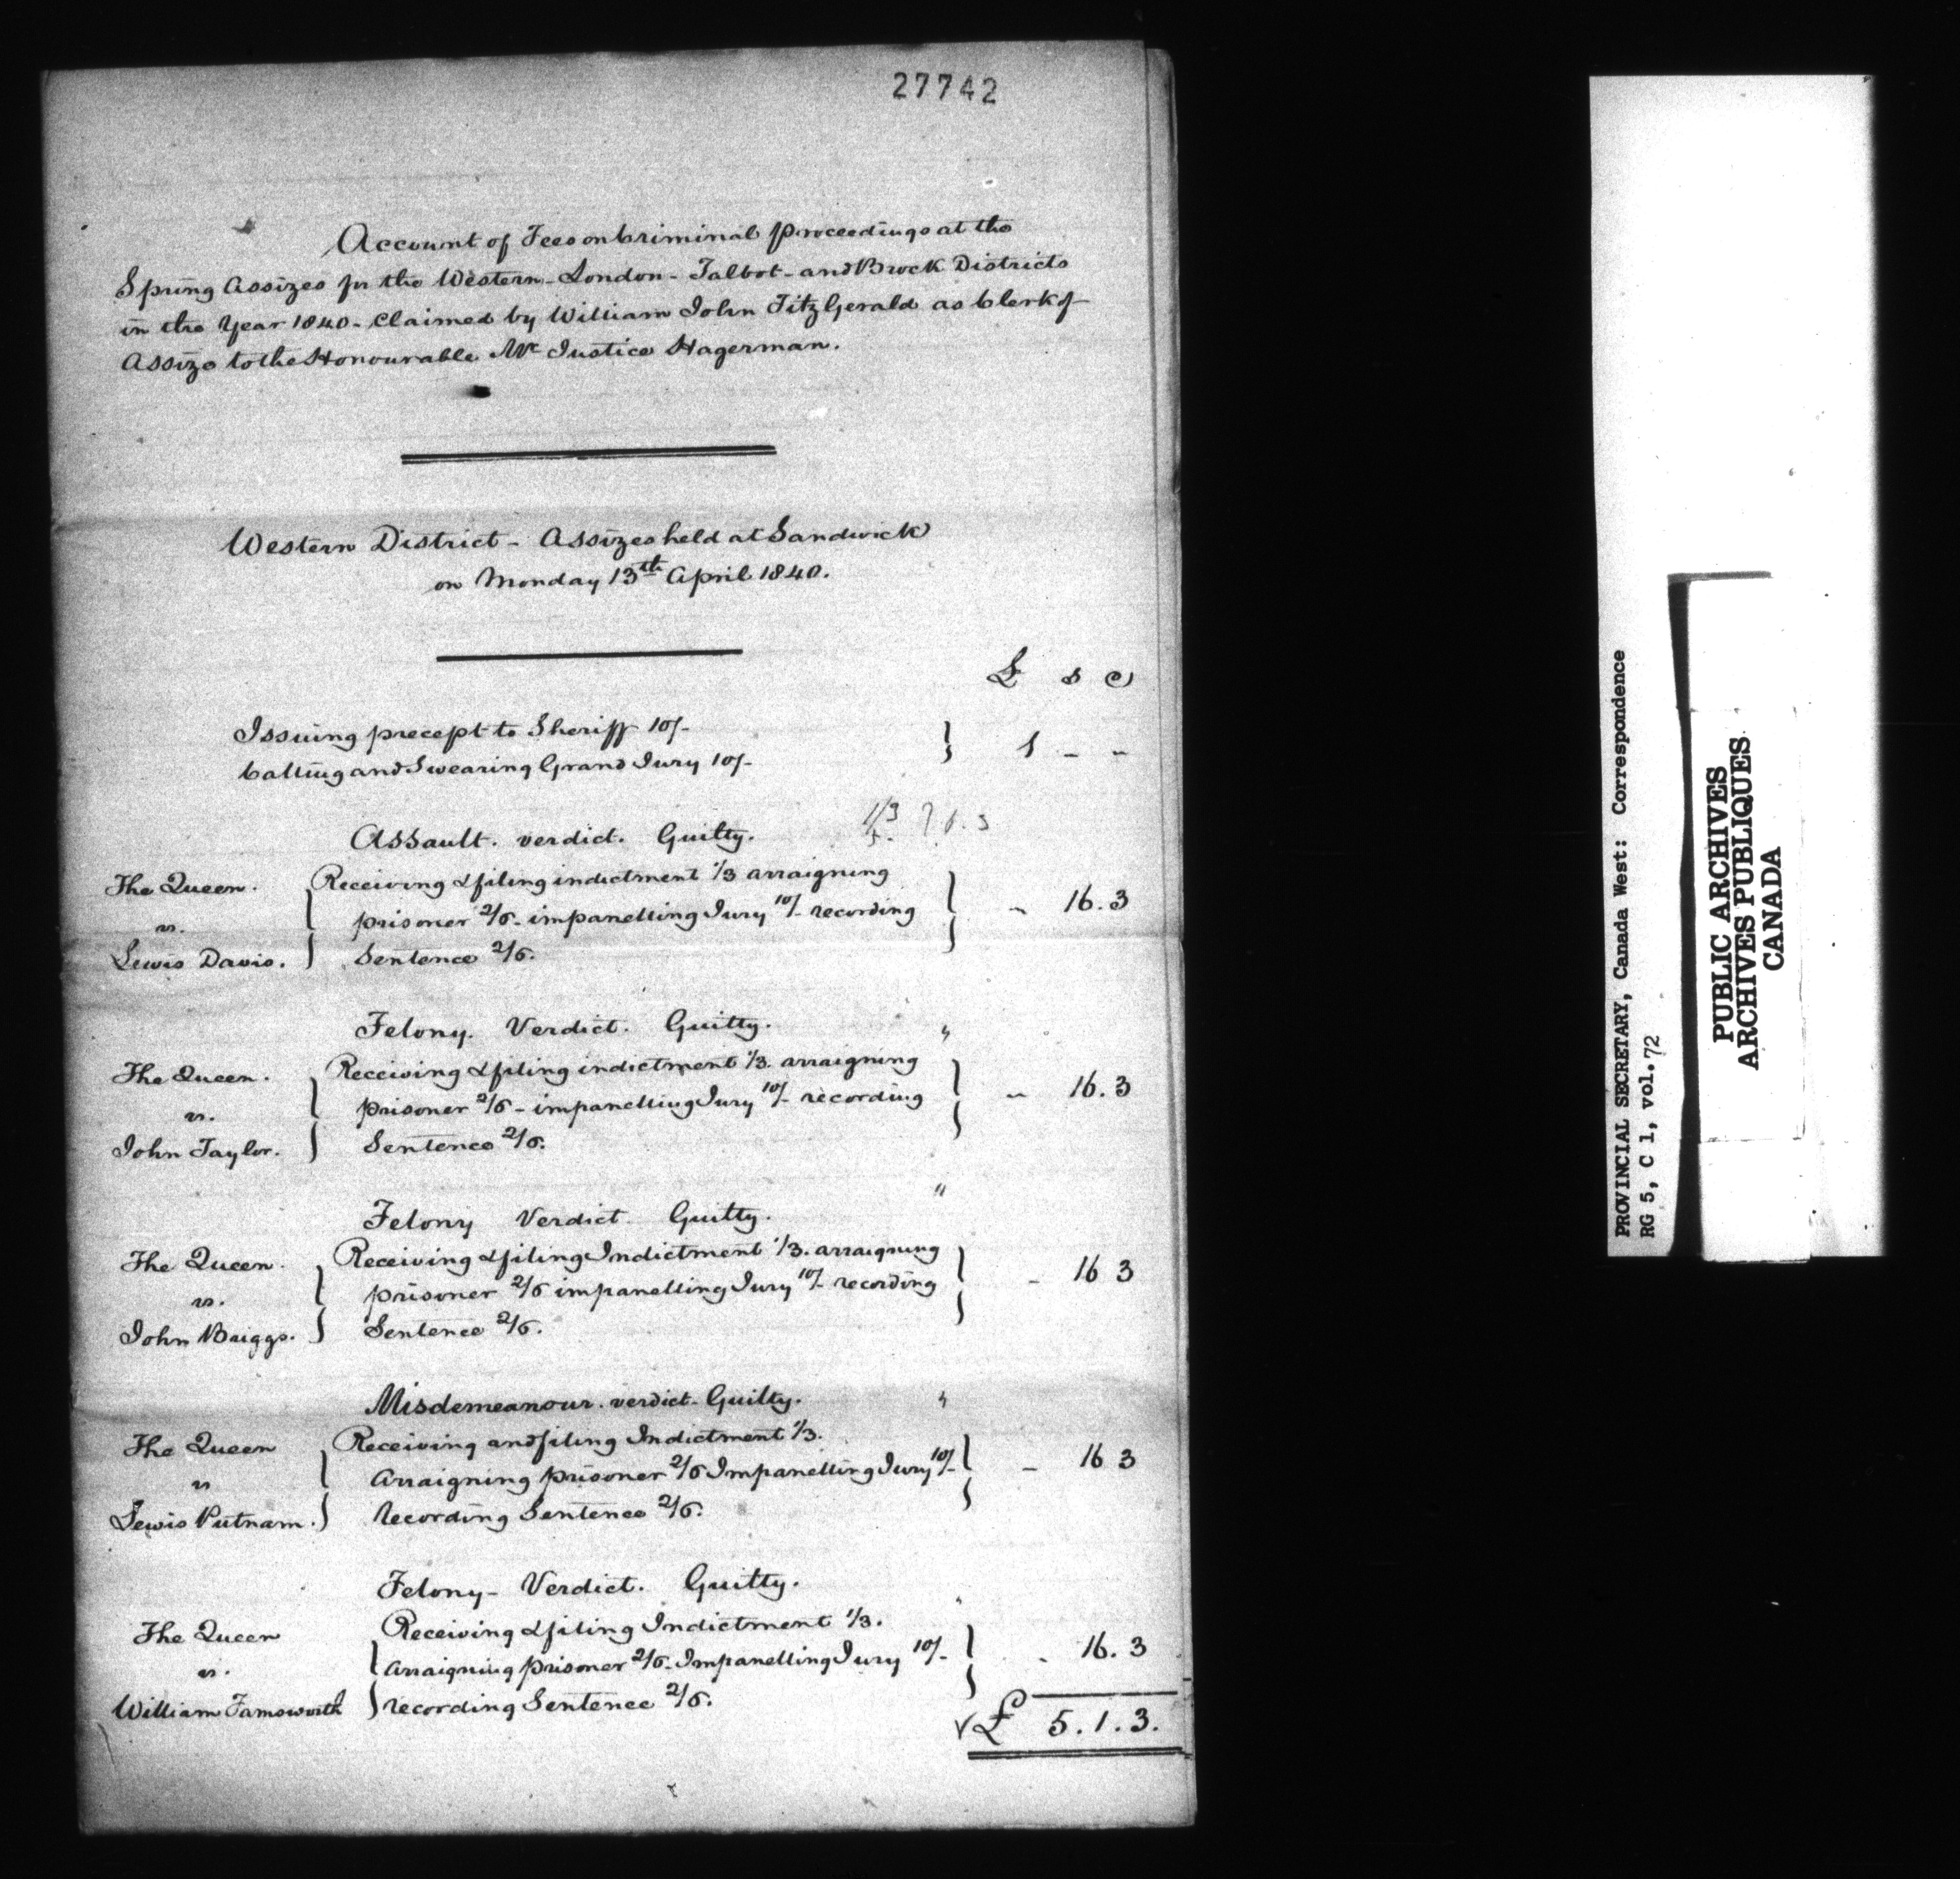 27742
Account of Fees on Criminal proceedings at the
Spring Assizes for the Western - London - Talbot - and Brock Districts
in the Year 1840 - Claimed by William John FitzGerald as Clerk of
Assize to the Honourable Mr Justice Hagerman.
Western District - Assizes held at Sandwick
on Monday 13th April 1840.
£ s d
Issuing precept to Sheriff 10/-
Calling and Swearing Grand Jury 10/- } 1 - -
Assault. verdict. Guilty. 1/3
The Queen. Receiving & filing indictment 1/3 arraigning
vs. prisoner 2/6 - impanelling Jury 10/- recording - 16.3
Lewis Davis. Sentence 2/6.
Felony. Verdict. Guilty. "
The Queen. Receiving & filing indictment 1/3. arraigning
vs. prisoner 2/6 - impanelling Jury 10/- recording - 16.3
John Taylor. Sentence 2/6.
Felony Verdict Guilty. "
The Queen. Receiving & filing Indictment 1/3. arraigning
vs. prisoner 2/6 impanelling Jury 10/- recording - 16 3
John Briggs. Sentence 2/6.
Misdemeanour. verdict - Guilty. "
The Queen Receiving and filing Indictment 1/3.
vs Arraigning prisoner 2/6 Impanelling Jury 10/- - 16 3
Lewis Putnam. recording Sentence 2/6.
Felony - Verdict. Guilty. "
The Queen Receiving & filing Indictment 1/3.
vs. arraigning prisoner 2/6 - Impanelling Jury 10/- - 16.3
William Farnsworth recording Sentence 2/6.
√ £ 5.1.3.
PROVINCIAL SECRETARY, Canada West: Correspondence
RG 5, C 1, vol. 72
PUBLIC ARCHIVES
ARCHIVES PUBLIQUES
CANADA